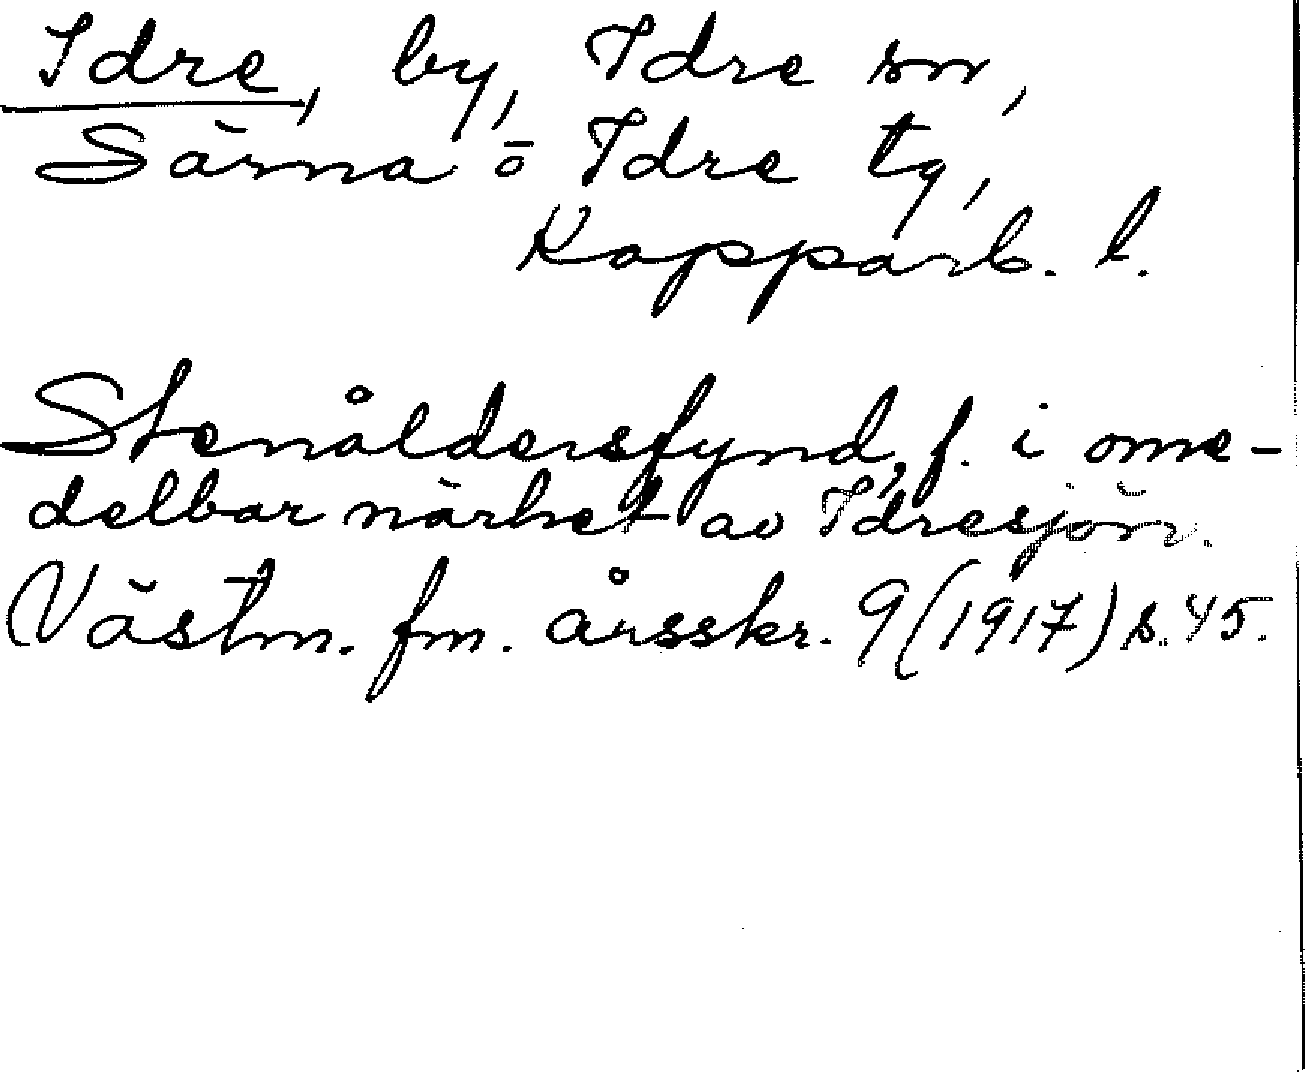 Idre, by, Idre sn,
Särna o Idre tg,
Kopparb. l.
Stenåldersfynd, f. i ome-
delbar närhet av Idresjön.
Västm. fm. årsskr. 9 (1917) s. 45.